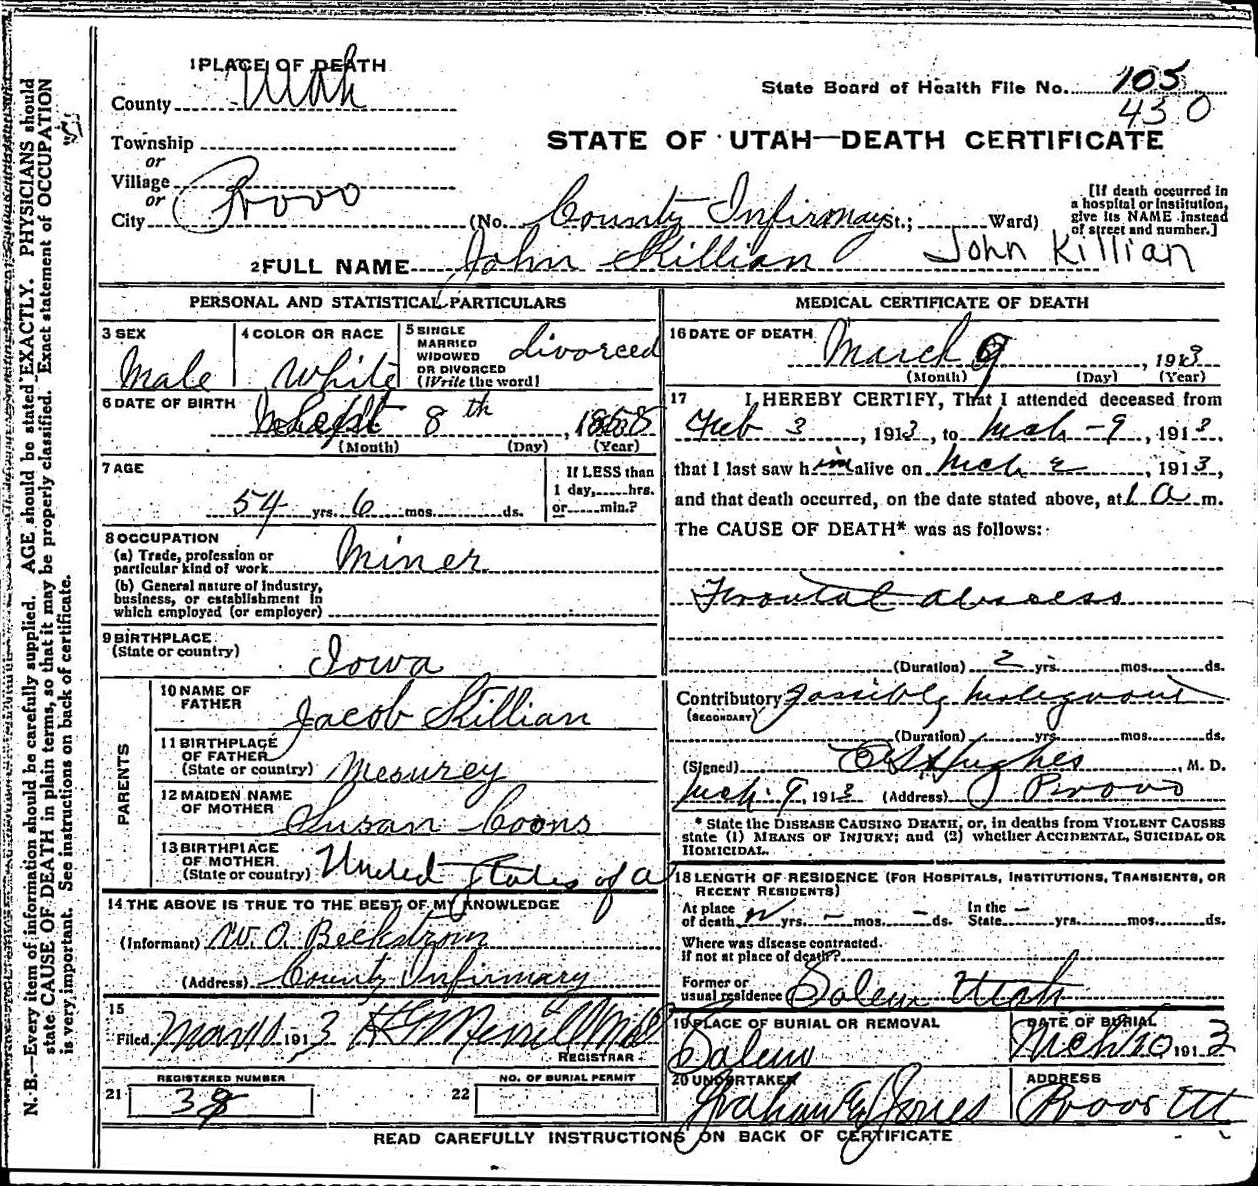 1 PLACE OF DEATH
County Utah
State Board of Health File No. 105
430
Township
or
Village
or
City Provo
STATE OF UTAH—DEATH CERTIFICATE
(No. County Infirmary St.; Ward)
[If death occurred in a hospital or institution, give its NAME instead of street and number.]
2 FULL NAME John Killian John Killian
PERSONAL AND STATISTICAL PARTICULARS
3 SEX Male
4 COLOR OR RACE White
5 SINGLE MARRIED WIDOWED OR DIVORCED (Write the word) divorced
6 DATE OF BIRTH Sept 8th, 1858
(Month) (Day) (Year)
7 AGE
54 yrs. 6 mos. ds.
If LESS than 1 day, hrs. or min.?
8 OCCUPATION
(a) Trade, profession or particular kind of work Miner
(b) General nature of industry, business, or establishment in which employed (or employer)
9 BIRTHPLACE
(State or country) Iowa
PARENTS
10 NAME OF FATHER Jacob Killian
11 BIRTHPLACE OF FATHER (State or country) Mesurey
12 MAIDEN NAME OF MOTHER Susan Coons
13 BIRTHPLACE OF MOTHER (State or country) United States of A
14 THE ABOVE IS TRUE TO THE BEST OF MY KNOWLEDGE
(Informant) W. O. Beckstrom
(Address) County Infirmary
15
Filed 1913 Merrill
REGISTRAR
REGISTERED NUMBER
21 38
NO. OF BURIAL PERMIT
22
MEDICAL CERTIFICATE OF DEATH
16 DATE OF DEATH March 9, 1913
(Month) (Day) (Year)
17 I HEREBY CERTIFY, That I attended deceased from
Feb 3, 1913, to Mch - 9, 1913,
that I last saw him alive on Mch, 1913,
and that death occurred, on the date stated above, at 1 A m.
The CAUSE OF DEATH* was as follows:
Frontal abscess
(Duration) 2 yrs. mos. ds.
Contributory (SECONDARY) possibly malignant
(Duration) yrs. mos. ds.
(Signed) Hughes, M. D.
Mch. 9, 1913 (Address) Provo
* State the DISEASE CAUSING DEATH, or, in deaths from VIOLENT CAUSES state (1) MEANS OF INJURY; and (2) whether ACCIDENTAL, SUICIDAL OR HOMICIDAL.
18 LENGTH OF RESIDENCE (FOR HOSPITALS, INSTITUTIONS, TRANSIENTS, OR RECENT RESIDENTS)
At place of death yrs. - mos. - ds. In the State - yrs. mos. ds.
Where was disease contracted. if not at place of death?
Former or usual residence Salem Utah
19 PLACE OF BURIAL OR REMOVAL Salem
DATE OF BURIAL Mch 10 1913
20 UNDERTAKER Graham & Jones
ADDRESS Provo Ut
READ CAREFULLY INSTRUCTIONS ON BACK OF CERTIFICATE
N. B.—Every item of information should be carefully supplied. AGE should be stated EXACTLY. PHYSICIANS should
state CAUSE OF DEATH in plain terms, so that it may be properly classified. Exact statement of OCCUPATION
is very important. See instructions on back of certificate.